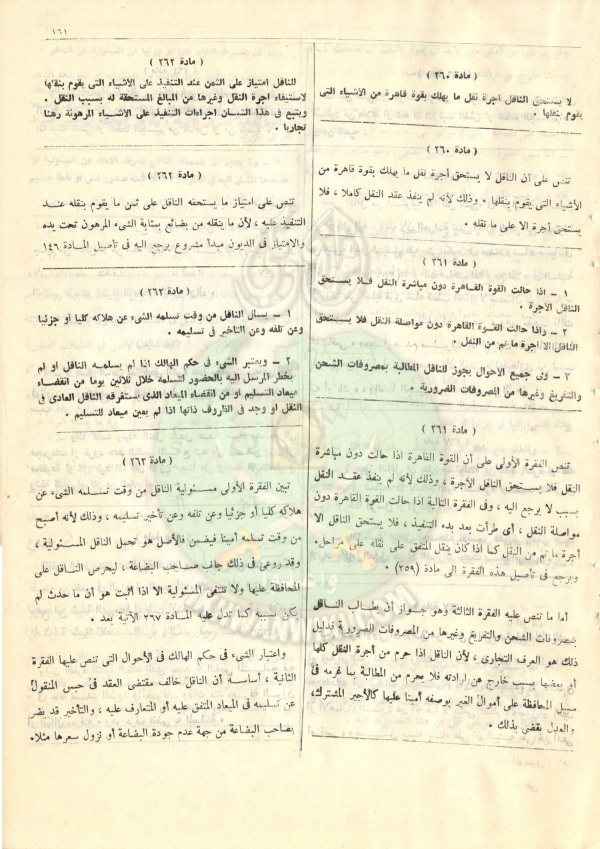 ١٦١
( مادة ٢٦٠ )
لا يستحق الناقل اجرة نقل ما يهلك بقوة قاهرة من الأشياء التى
يقوم بنقلها .
( مادة ٢٦٠ )
تنص على أن الناقل لا يستحق أجرة نقل ما يهلك بقوة قاهرة من
الأشياء التى يقوم بنقلها . وذلك لأنه لم ينفذ عقد النقل كاملا ، فلا
يستحق أجرة الا على ما نقله .
( مادة ٢٦١ )
١ – اذا حالت القوة القاهرة دون مباشرة النقل فلا يستحق
الناقل الأجرة .
٢ – واذا حالت القوة القاهرة دون مواصلة النقل فلا يستحق
الناقل الا اجرة ما تم من النقل .
٣ – وفى جميع الأحوال يجوز للناقل المطالبة بمصروفات الشحن
والتفريغ وغيرها من المصروفات الضرورية .
( مادة ٢٦١ )
تنص الفقرة الأولى على أن القوة القاهرة اذا حالت دون مباشرة
النقل فلا يستحق الناقل الأجرة ، وذلك لأنه لم ينفذ عقد النقل
بسبب لا يرجع اليه ، وفى الفقرة التالية اذا حالت القوة القاهرة دون
مواصلة النقل ، أى طرأت بعد بدء التنفيذ ، فلا يستحق الناقل الا
أجرة ما تم من النقل كما اذا كان ينقل المتفق على نقله على مراحل.
ويرجع فى تأصيل هذه الفقرة الى مادة (٢٥٩) .
أما ما تنص عليه الفقرة الثالثة وهو جواز أن يطالب الناقل
بمصروفات الشحن والتفريغ وغيرها من المصروفات الضرورية فدليل
ذلك هو العرف التجارى ، لأن الناقل اذا حرم من أجرة النقل كلها
أو بعضها بسبب خارج عن ارادته فلا يحرم من المطالبة بما غرمه فى
سبيل المحافظة على أموال الغير بوصفه أمينا عليها كالأجير المشترك،
والعدل يقضى بذلك .
( مادة ٢٦٢ )
للناقل امتياز على الثمن عند التنفيذ على الأشياء التى يقوم بنقلها
لاستيفاء اجرة النقل وغيرها من المبالغ المستحقة له بسبب النقل .
ويتبع فى هذا الشان اجراءات التنفيذ على الأشياء المرهونة رهنا
تجاريا .
( مادة ٢٦٢ )
تنص على امتياز ما يستحقه الناقل على ثمن ما يقوم بنقله عند
التنفيذ عليه ، لأن ما ينقله من بضائع بمثابة الشىء المرهون تحت يده
والامتياز فى الديون مبدأ مشروع يرجع اليه فى تأصيل المادة ١٤٦
( مادة ٢٦٣ )
١ – يسال الناقل من وقت تسلمه الشىء عن هلاكه كليا او جزئيا
وعن تلفه وعن التأخير فى تسليمه .
٢ – ويعتبر الشىء فى حكم الهالك اذا لم يسلمه الناقل او لم
يخطر المرسل اليه بالحضور لتسلمه خلال ثلاثين يوما من انقضاء
ميعاد التسليم او من انقضاء الميعاد الذى يستغرقه الناقل العادى فى
النقل او وجد فى الظروف ذاتها اذا لم يعين ميعاد للتسليم .
( مادة ٢٦٣ )
تبين الفقرة الأولى مسئولية الناقل من وقت تسلمه الشىء عن
هلاكه كليا أو جزئيا وعن تلفه وعن تأخير تسليمه ، وذلك لأنه أصبح
من وقت تسلمه أمينا فيضمن فالأصل هو تحمل الناقل المسئولية ،
وقد روعى فى ذلك جانب صاحب البضاعة ، ليحرص الناقل على
المحافظة عليها ولا تنتفى المسئولية الا اذا أثبت هو أن ما حدث لم
يكن بسببه كما تدل عليه المادة ٢٦٧ الآتية بعد .
واعتبار الشىء فى حكم الهالك فى الأحوال التى تنص عليها الفقرة
الثانية ، أساسه أن الناقل خالف مقتضى العقد فى حبس المنقول
عن تسليمه فى الميعاد المتفق عليه أو المتعارف عليه ، والتأخير قد يضر
بصاحب البضاعة من جهة عدم جودة البضاعة أو نزول سعرها مثلا.